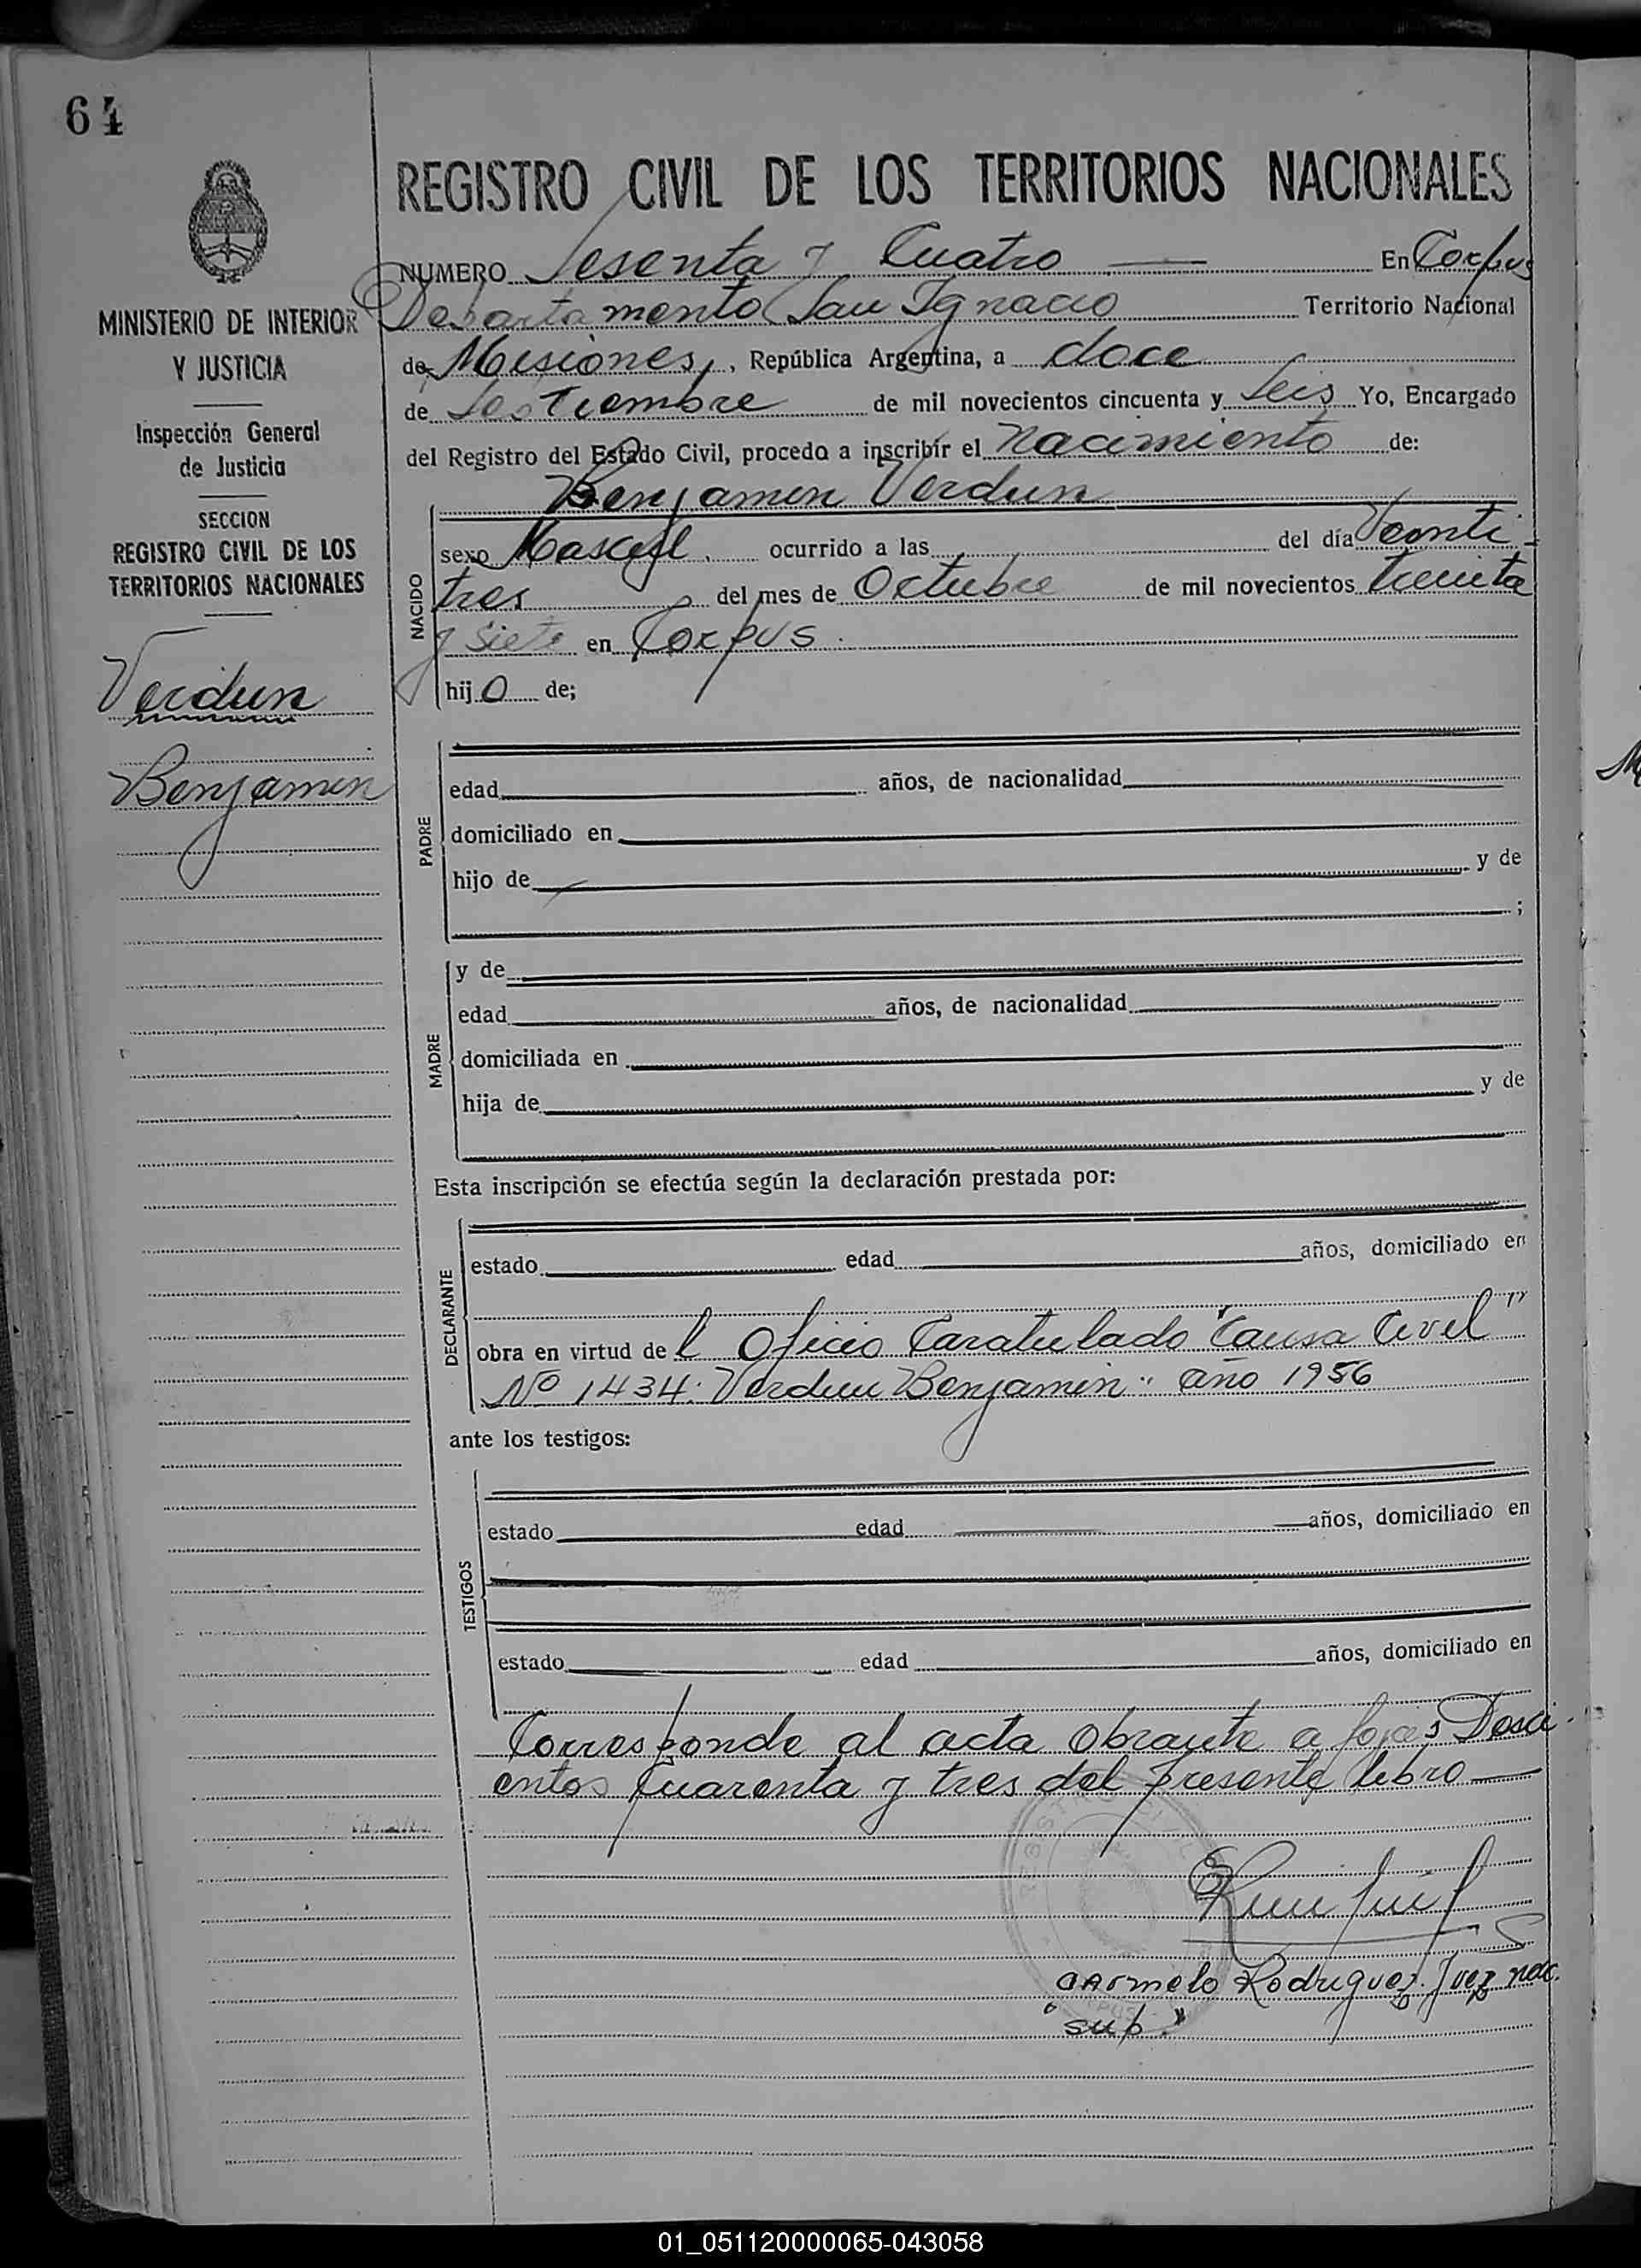 64
REGISTRO CIVIL DE LOS TERRITORIOS NACIONALES
NUMERO Sesenta y Cuatro En Corpus
Departamento San Ignacio Territorio Nacional
de Misiones, República Argentina, a doce
de Septiembre de mil novecientos cincuenta y Seis Yo, Encargado
del Registro del Estado Civil, procedo a inscribir el Nacimiento de:
Benjamin Verdun
sexo Mascul. ocurrido a las del día Veinti-
tres del mes de Octubre de mil novecientos treinta
y siete en Corpus.
hijo de;
NACIDO
MINISTERIO DE INTERIOR
Y JUSTICIA
Inspección General
de Justicia
SECCION
REGISTRO CIVIL DE LOS
TERRITORIOS NACIONALES
Verdun
Benjamin
edad años, de nacionalidad
domiciliado en
hijo de y de
;
PADRE
y de
edad años, de nacionalidad
domiciliada en
hija de y de
MADRE
Esta inscripción se efectúa según la declaración prestada por:
estado edad años, domiciliado en
obra en virtud del Oficio Caratulado "Causa Civil"
Nº 1434: Verdun Benjamin" año 1956
DECLARANTE
ante los testigos:
estado edad años, domiciliado en
estado edad años, domiciliado en
TESTIGOS
Corresponde al acta obrante a fojas Dosci-
entos cuarenta y tres del presente libro
Carmelo Rodriguez. Juez
"sup."
01_051120000065-043058